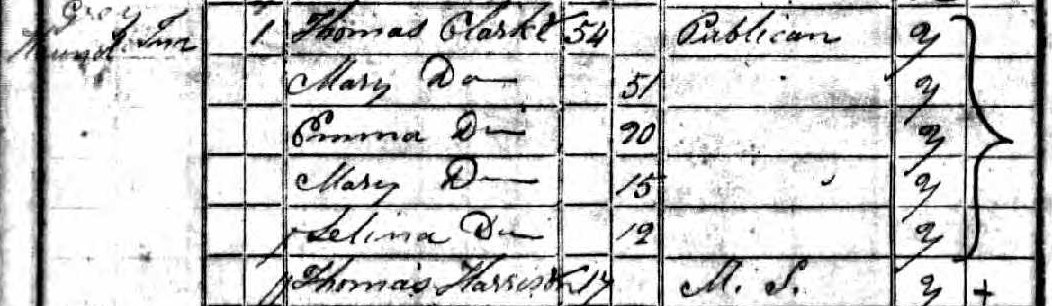 Grey
Hound Inn 1 Thomas Clarke 54 Publican y
Mary Do 51 y
Emma Do 20 y
Mary Do 15 y
Selina Do 12 y
Thomas Harris 17 M. S. y +